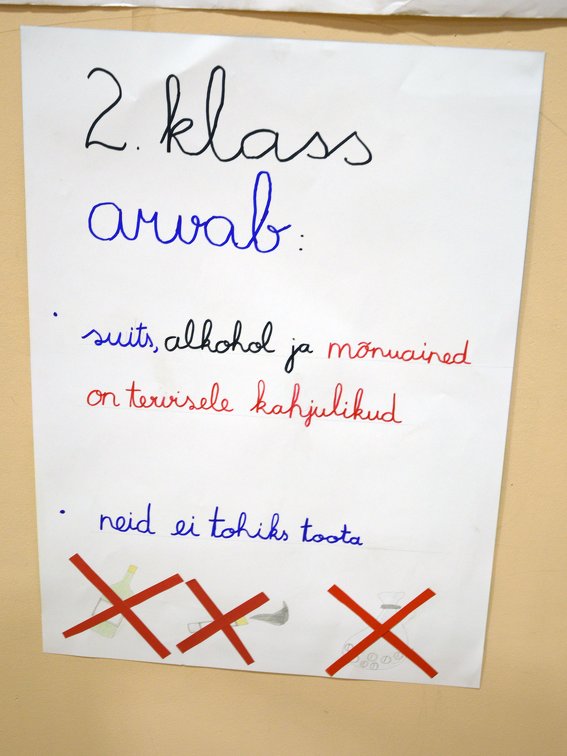 2. klass
arvab:
• suits, alkohol ja mõnuained
on tervisele kahjulikud
• neid ei tohiks toota